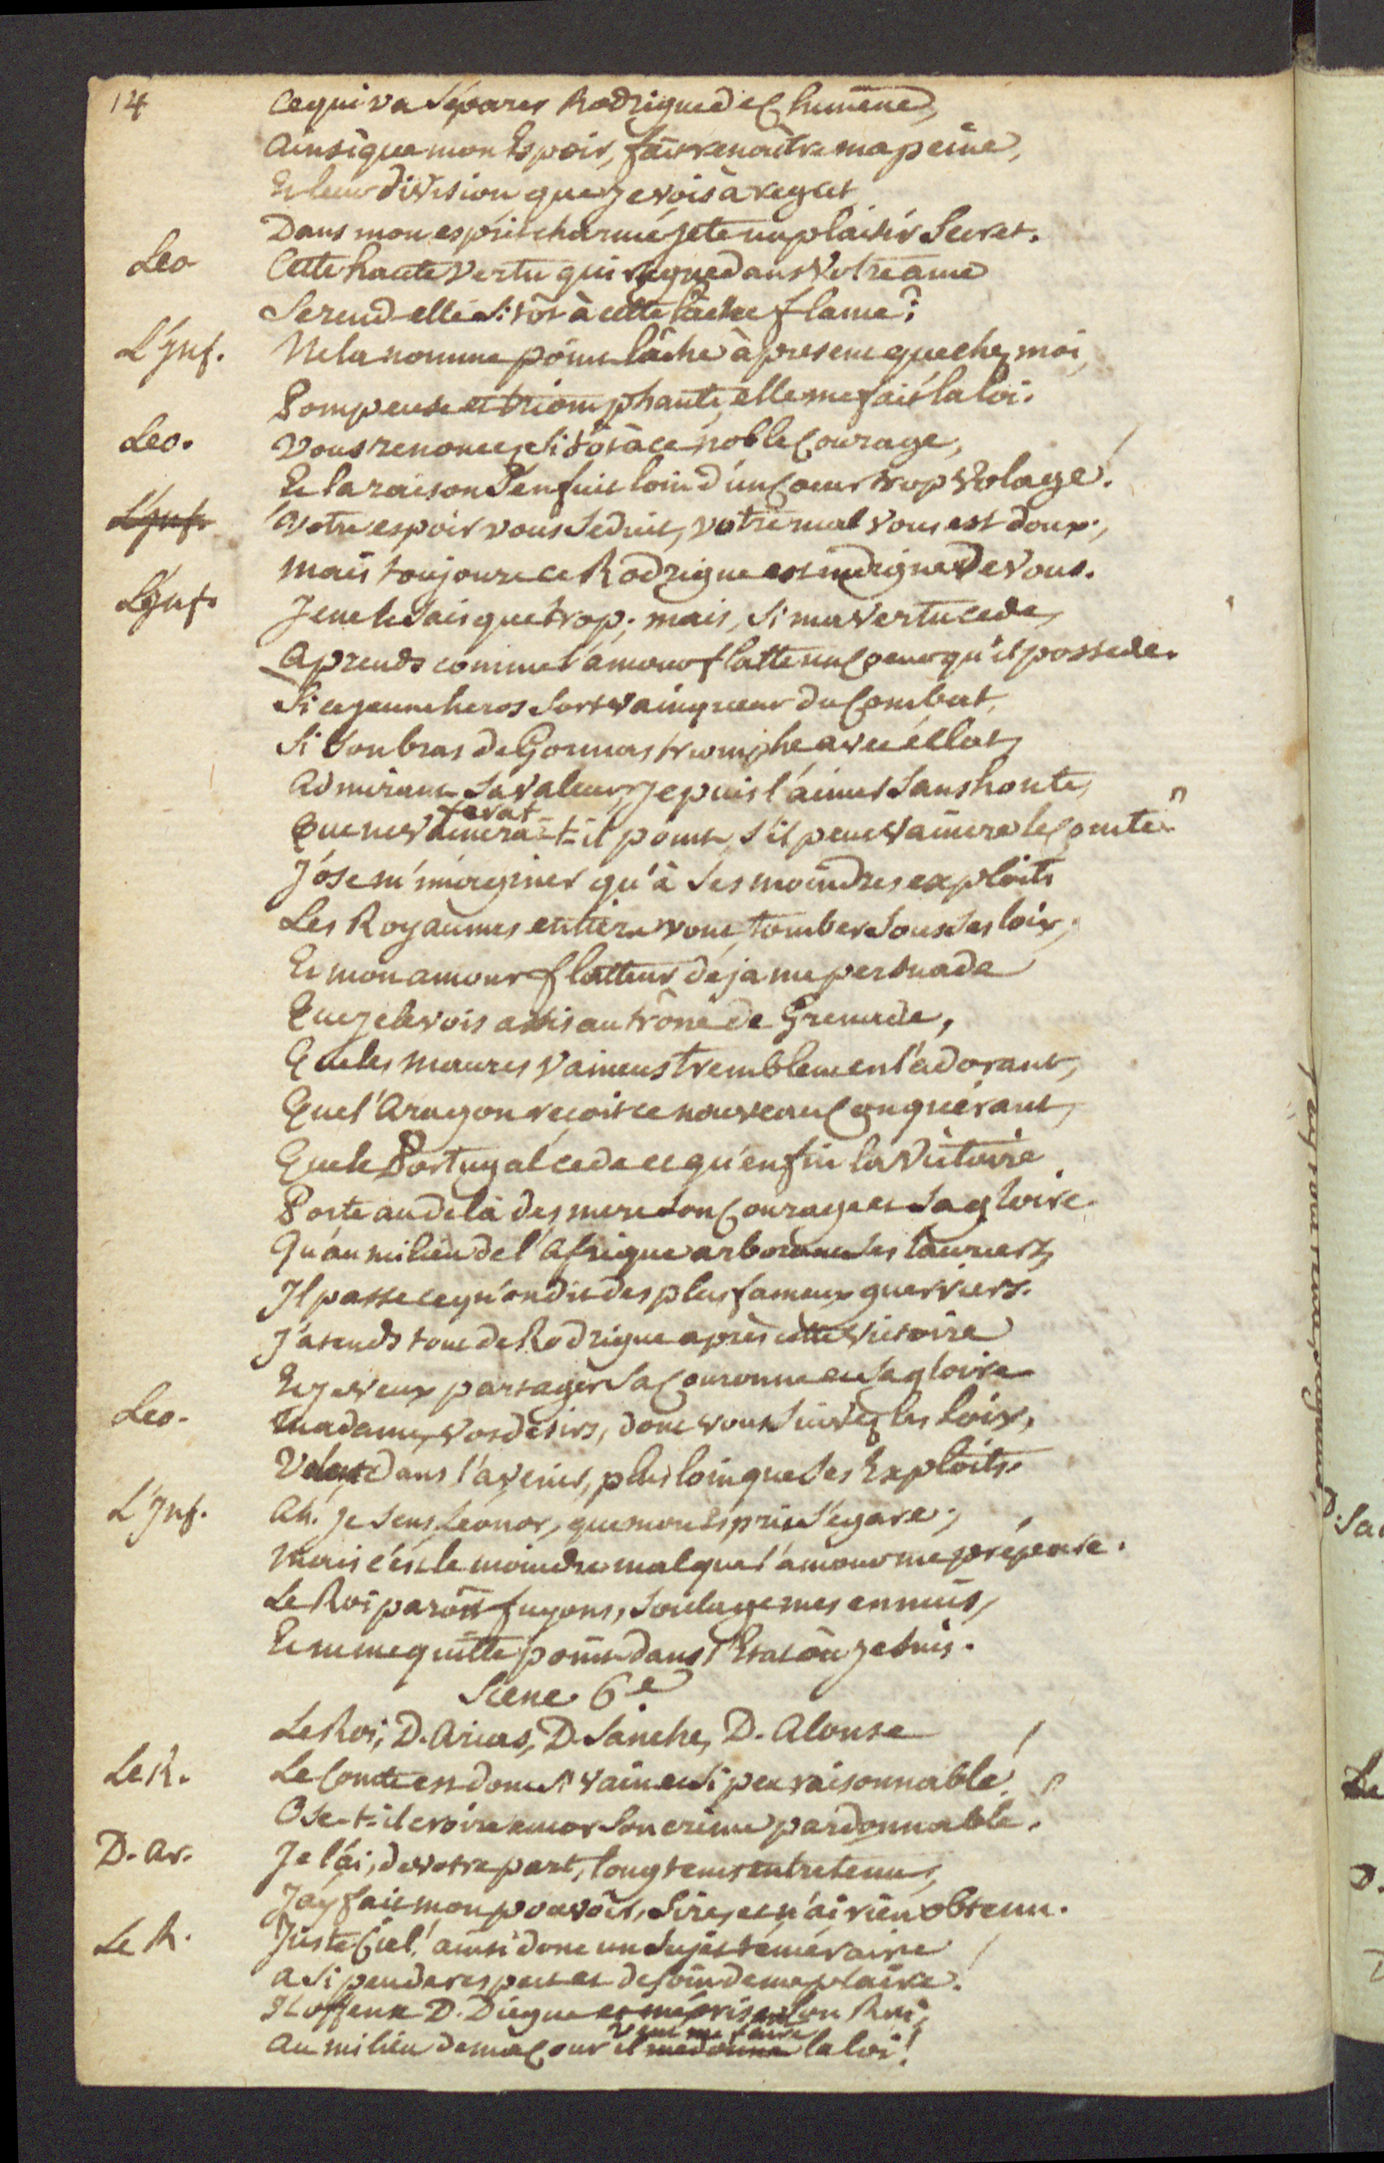 14
Ce qui va séparer Rodrigue de Chimene,
Ainsi que mon Espoir, fait renaitre ma peine,
Et leur division que je vois à regret
Dans mon esprit charmé jete un plaisir Secret.
Leo Cette haute Vertu qui regne dans Votre ame
Se rend-elle Si tôt à cette lâche flame?
L'Jnf. Ne la nomme point lâche à present que chez moi,
Pompeuse et triomphante, elle me fait la loi.
Leo. Vous renoncez Si tôt à ce noble Courage,
Et la raison S'enfuit loin d'un Coeur trop Volage!
L'Jnf. Votre espoir vous Seduit, votre mal vous est doux,
Mais toujours ce Rodrigue est indigne de Vous.
L'Jnf. Je ne le Sais que trop; mais, Si ma Vertu cede,
Aprends comme l'amour flatte un Coeur qu'il possede.
Si ce jeune heros Sort Vainqueur du Combat,
Si Son bras de Gormas triomphe avec éclat,
Admirant Sa valeur, Je puis l'aimer Sans honte,
ferat
Que ne Vaincra-t-il point, S'il peut Vaincre le Comte?
J'ose m'imaginer qu'à Ses moindres exploits
Les Royaumes entiers vont tomber Sous Ses loix;
Et mon amour flatteur deja me persuade
Que je le vois assis au trône de Grenade,
Que les Maures Vaincus tremblent en l'adorant,
Que l'Aragon reçoit ce nouveau Conquérant,
Que le Portugal cede et qu'enfin la Victoire
Porte au delà des mers Son Courage et Sa gloire.
Qu'au milieu de l'Afrique arborant Ses lauriers,
Il passe ce qu'on dit des plus fameux guerriers.
J'atends tout de Rodrigue après cette Victoire
Et je veux partager Sa Couronne et Sa gloire
Leo. Madame, Vos desirs, dont vous Suivez les loix,
Volent dans l'avenir, plus loin que Ses Exploits.
L'Jnf. Ah. Je Sens, Leonor, que mon Esprit S'égare;
Mais c'est le moindre mal que l'amour me prépare.
Le Roi paroît fuyons, Soulage mes ennuis,
Et ne me quitte point dans l'Etat où je Suis.
Scene 6e
Le Roi, D. Arias, D. Sanche, D. Alonse
Le R. Le Comte est donc Si vain et Si peu raisonnable!
Ose-t-il croire encor Son crime pardonnable?
D. Ar. Je l'ai, de votre part, longtems entretenu,
J'ay fait mon pouvoir, Sire, et n'ai rien obtenu.
Le R. Juste Ciel! ainsi donc un Sujet téméraire
A Si peu de respect et de soin de me plaire!
Il offense D. Diegue et méprise Son Roi;
veut me faire
Au milieu de ma Cour il me donne la loi!